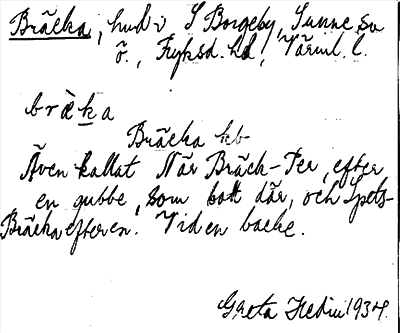 Bräcka, hud i S Borgeby, Sunne sn
ö., Fryksd. hd, Värml. l.
bräka
Bräcka kb
Även kallat När Bräck-Per, efter
en gubbe, som bott där, och Spets-
Bräcka efter en. Vid en backe.
Greta Hedin 1934.